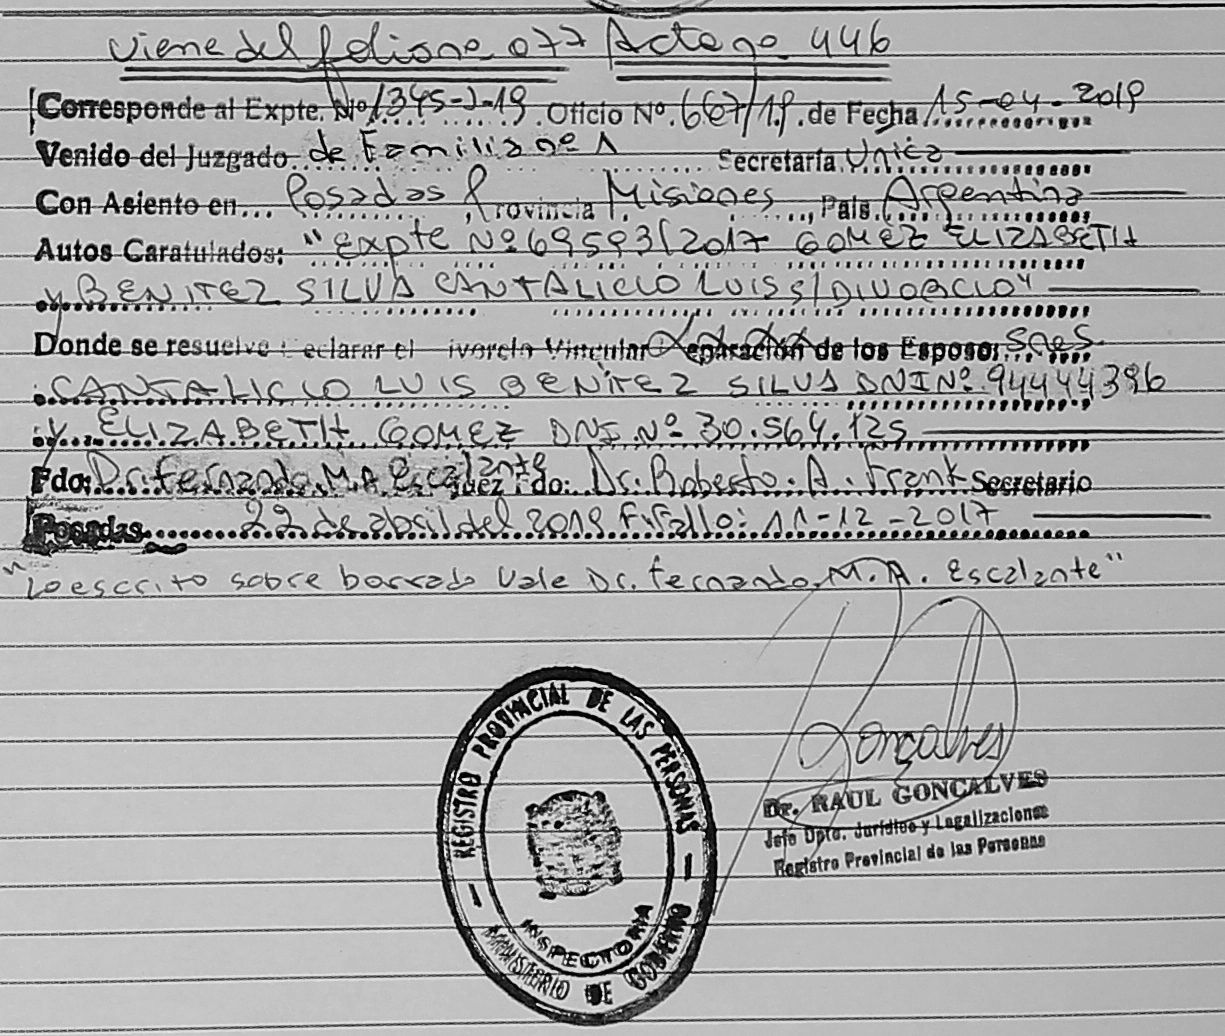 Viene del folio nº 077 Acta nº 446
Corresponde al Expte. Nº 1345-J-19. Oficio Nº. 667/19. de Fecha 15-04-2019
Venido del Juzgado de Familia nº 1 Secretaría Unica
Con Asiento en... Posadas Provincia Misiones, País. Argentina
Autos Caratulados: "Expte Nº 69593/2017 GOMEZ ELIZABETH
y BENITEZ SILVA CANTALICIO LUIS S/DIVORCIO"
Donde se resuelve eclarar el ivorcio Vincular eparación de los Esposos Sres.
CANTALICIO LUIS BENITEZ SILVA DNI Nº 94444396
y ELIZABETH GOMEZ DNI Nº 30.564.125
Fdo: Dr. Fernando M.A Escalante Juez Fdo: Dr. Roberto A. Frank Secretario
Posadas 22 de abril del 2019 F. Fallo: 11-12-2017
"Lo escrito sobre borrado Vale Dr. Fernando M. A. Escalante"
Goncalves
Dr. RAUL GONCALVES
Jefe Dpto. Jurídico y Legalizaciones
Registro Provincial de las Personas
REGISTRO PROVINCIAL DE LAS PERSONAS
INSPECTORIA
MINISTERIO DE GOBIERNO